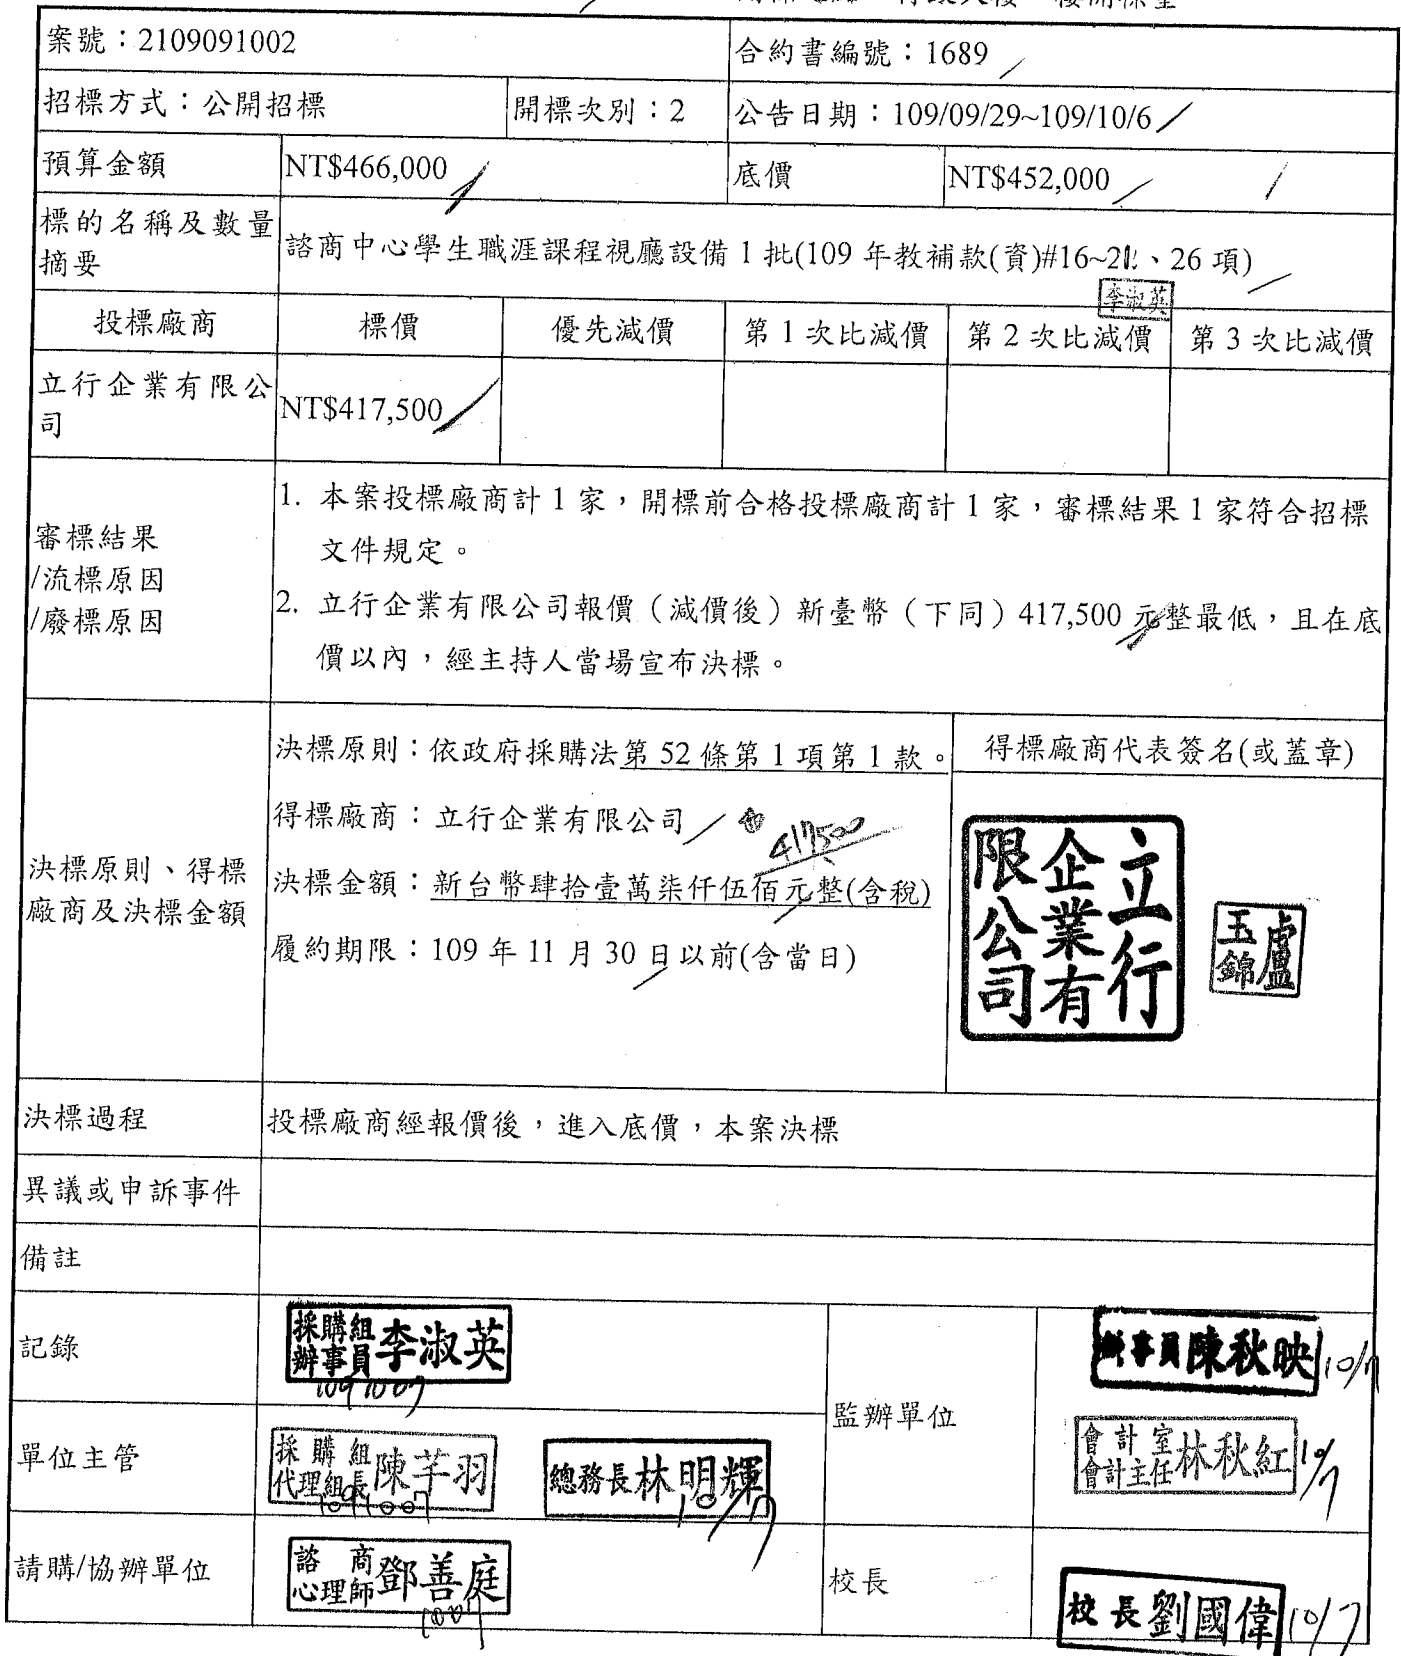 案號：2109091002
合約書編號：1689
招標方式：公開招標
開標次別：2
公告日期：109/09/29~109/10/6
預算金額
NT$466,000
底價
NT$452,000
標的名稱及數量
摘要
諮商中心學生職涯課程視廳設備 1 批(109 年教補款(資)#16~21、26 項)
李淑英
投標廠商
標價
優先減價
第 1 次比減價
第 2 次比減價
第 3 次比減價
立行企業有限公
司
NT$417,500
審標結果
/流標原因
/廢標原因
1. 本案投標廠商計 1 家，開標前合格投標廠商計 1 家，審標結果 1 家符合招標
文件規定。
2. 立行企業有限公司報價（減價後）新臺幣（下同）417,500 元整最低，且在底
價以內，經主持人當場宣布決標。
決標原則、得標
廠商及決標金額
決標原則：依政府採購法第 52 條第 1 項第 1 款。
得標廠商：立行企業有限公司
417500
決標金額：新台幣肆拾壹萬柒仟伍佰元整(含稅)
履約期限：109 年 11 月 30 日以前(含當日)
得標廠商代表簽名(或蓋章)
立行
企業有
限公司
盧
玉錦
決標過程
投標廠商經報價後，進入底價，本案決標
異議或申訴事件
備註
記錄
採購組
辦事員李淑英
1091007
監辦單位
辦事員陳秋映
10/7
單位主管
採購組
代理組長陳芊羽
1091007
總務長林明輝
10/7
會計室
會計主任林秋紅
10/7
請購/協辦單位
諮商
心理師鄧善庭
1007
校長
校長劉國偉
10/7